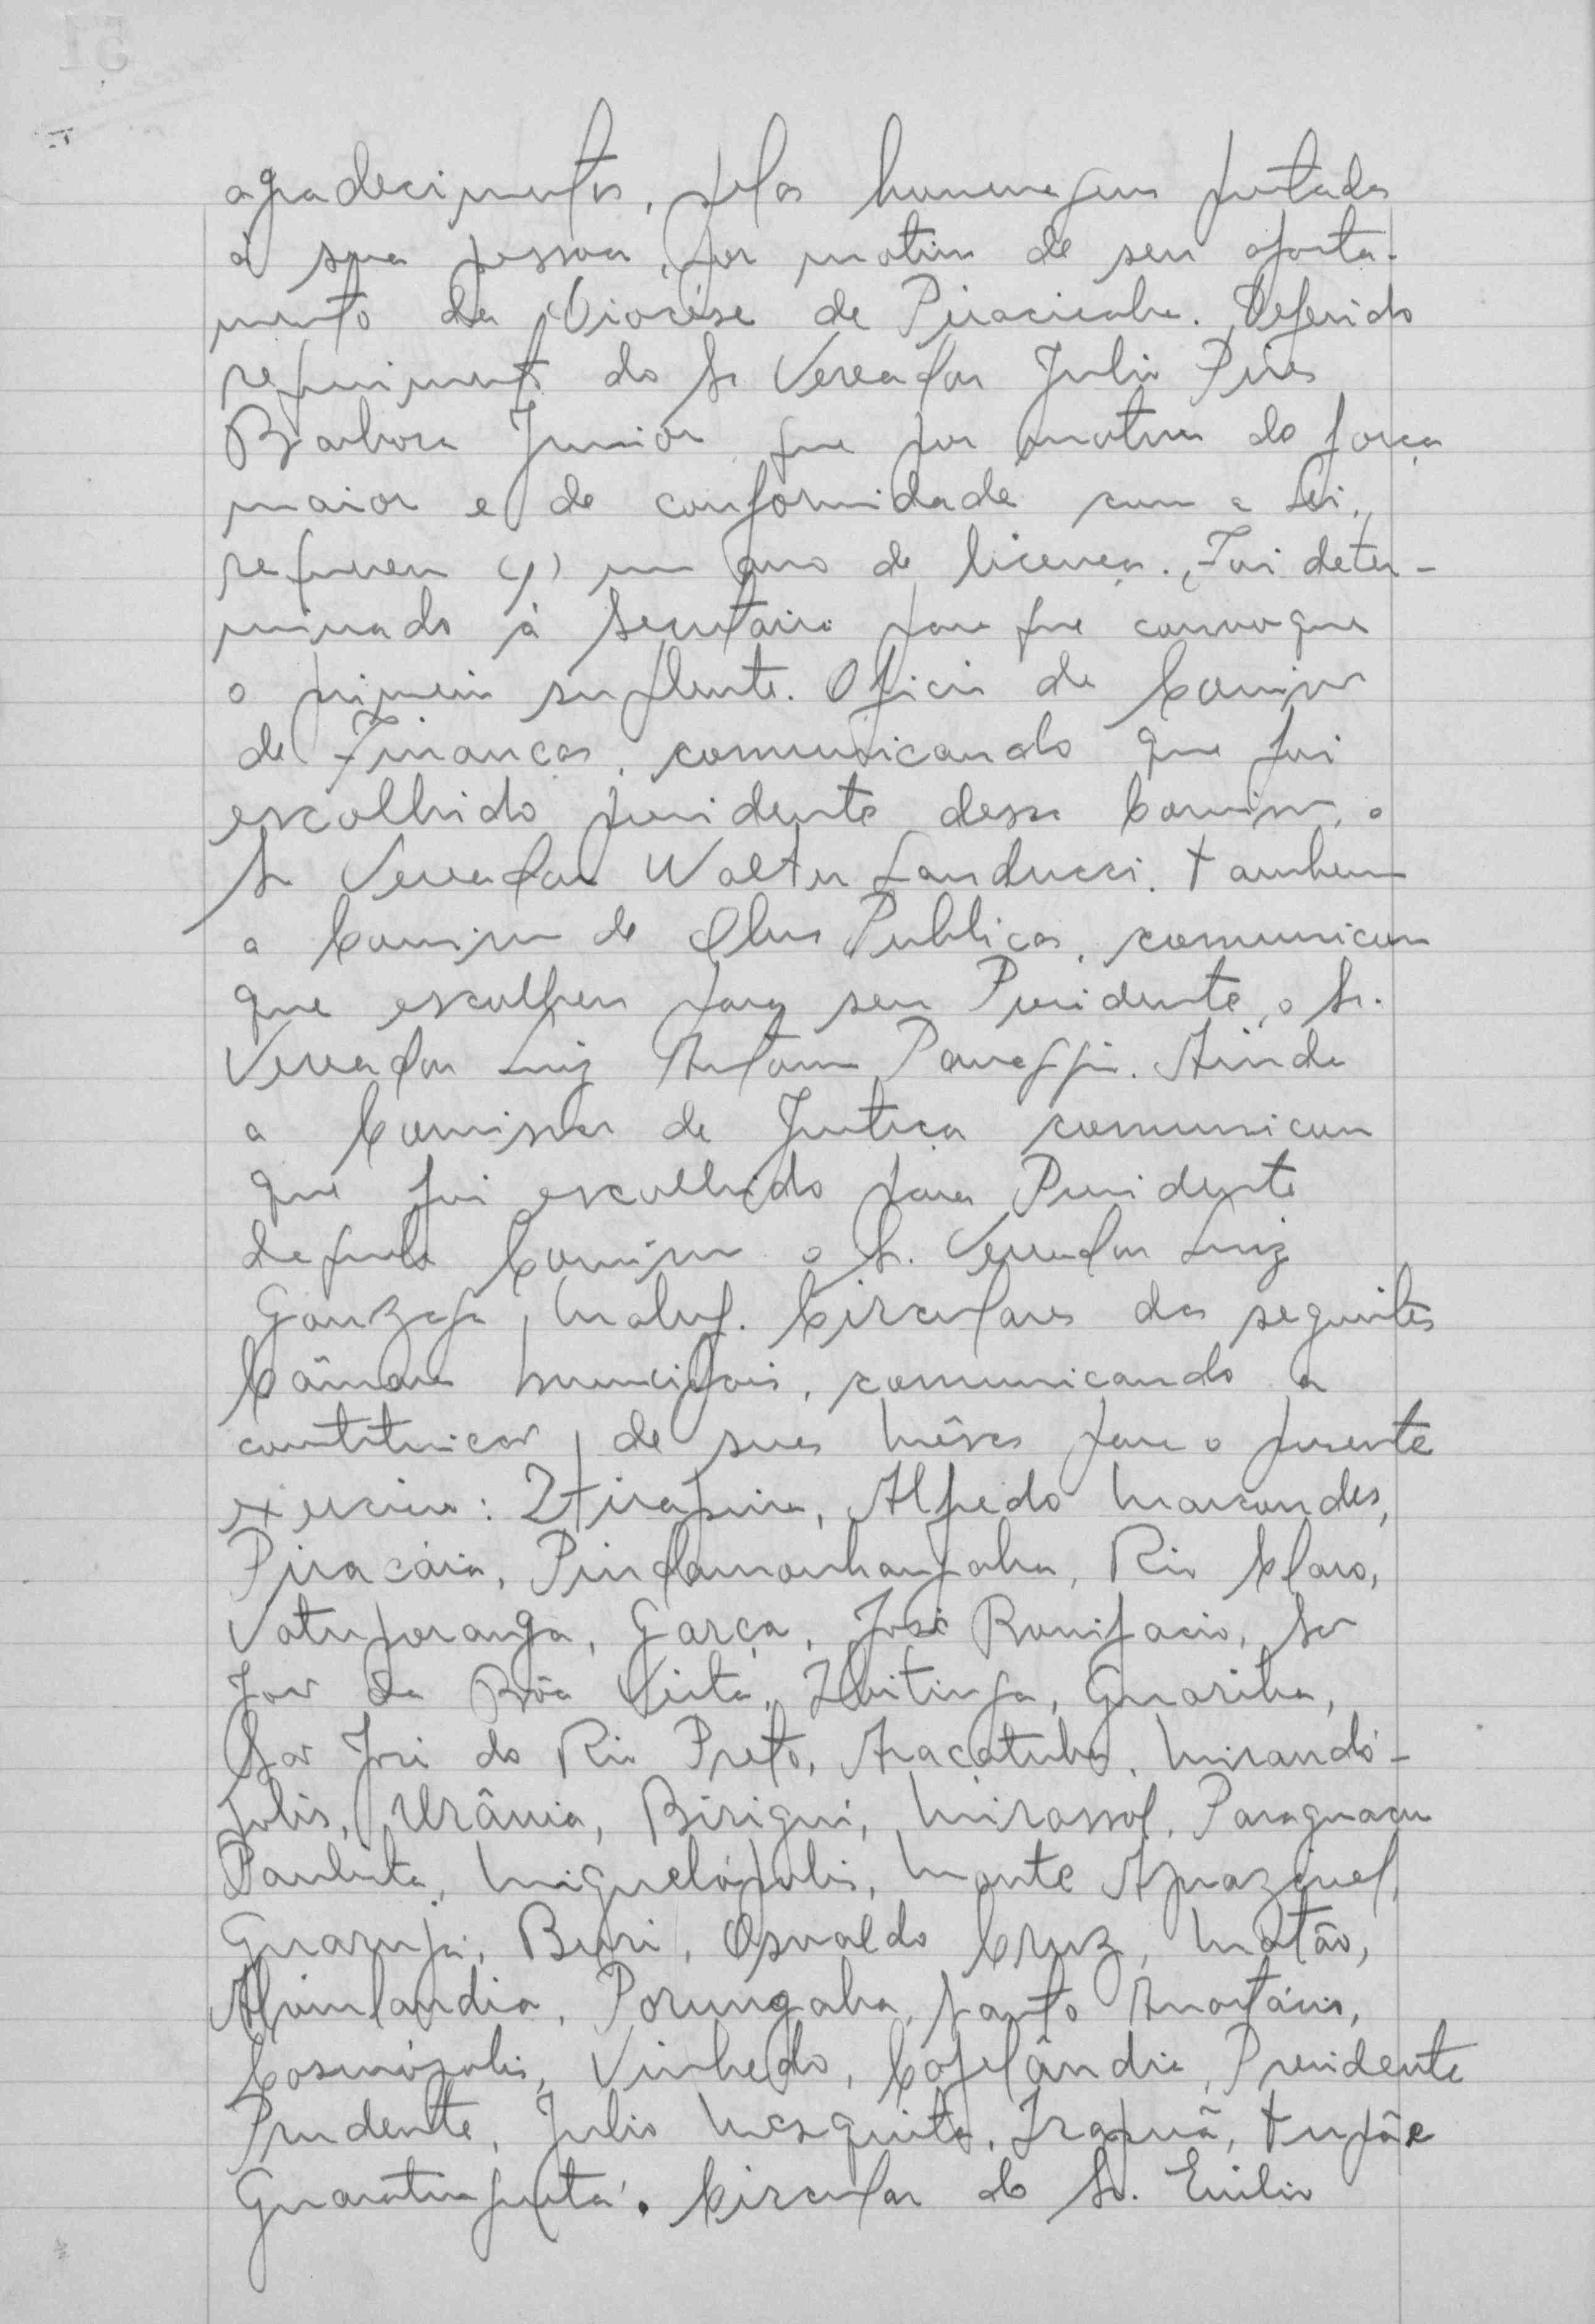 agradecimentos, pelas homenagens prestadas
à sua pessoa, por motivo de seu aporta-
mento da Diocése de Piracicaba. Deferido
requerimento do Sr Vereador Julio Pires
Barbosa Junior que por motivo do força
maior e de conformidade com a Lei,
requereu (1) um ano de licença. Foi deter-
minado à Secretaria para que convoque
o primeiro suplente. Oficio da Comissão
de Finanças, comunicando que foi
escolhido presidente dessa Comissão, o
Sr Vereador Walter Landucci. Tambem
a Comissão de Obras Publicas, comunicou
que escolheu para seu Presidente, o Sr.
Vereador Luiz Antonio Paneggi. Ainda
a Comissão de Justiça comunicou
que foi escolhido para Presidente
daquela Comissão o Sr. Vereador Luiz
Gonzaga Maluf. Circulares das seguintes
Câmaras Municipais, comunicando a
constituição de suas Mêsas para o presente
exercicio: Itirapina, Alfredo Marcondes,
Piracáia, Pindamonhangaba, Rio Claro,
Votuporanga, Garça, José Bonifacio, São
João da Bôa Vista, Ibitinga, Guariba,
São José do Rio Preto, Araçatuba, Mirandó-
polis, Urânia, Birigui, Mirassol, Paraguaçu
Paulista, Miguelópolis, Monte Aprazivel,
Guarujá, Buri, Osvaldo Cruz, Matão,
Alvinlandia, Porungaba, Santo Anastácio,
Cosmópolis, Vinhedo, Cafelândia, Presidente
Prudente, Julio Mesquita, Irapuã, Tupã e
Guaratinguetá. Circular do Sr. Emilio